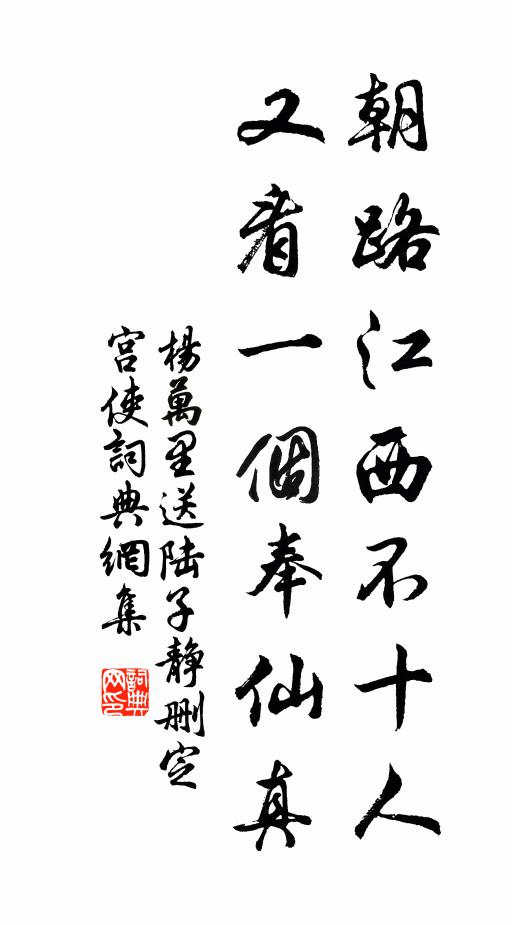 朝路江西不十人
又看一個奉仙真
楊萬里送陆子靜删定
宫使詞典網集
詞典网印